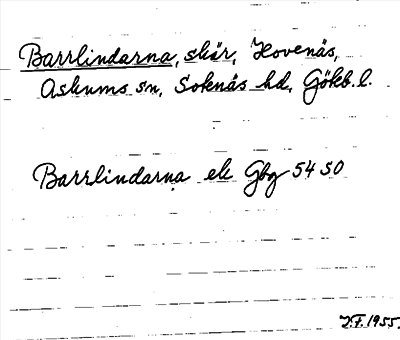 Barrlindarna, skär, Hovenäs,
Askums sn, Sotenäs hd, Göteb. l.
Barrlindarna ek Gbg 54 SO
J.F. 1955.